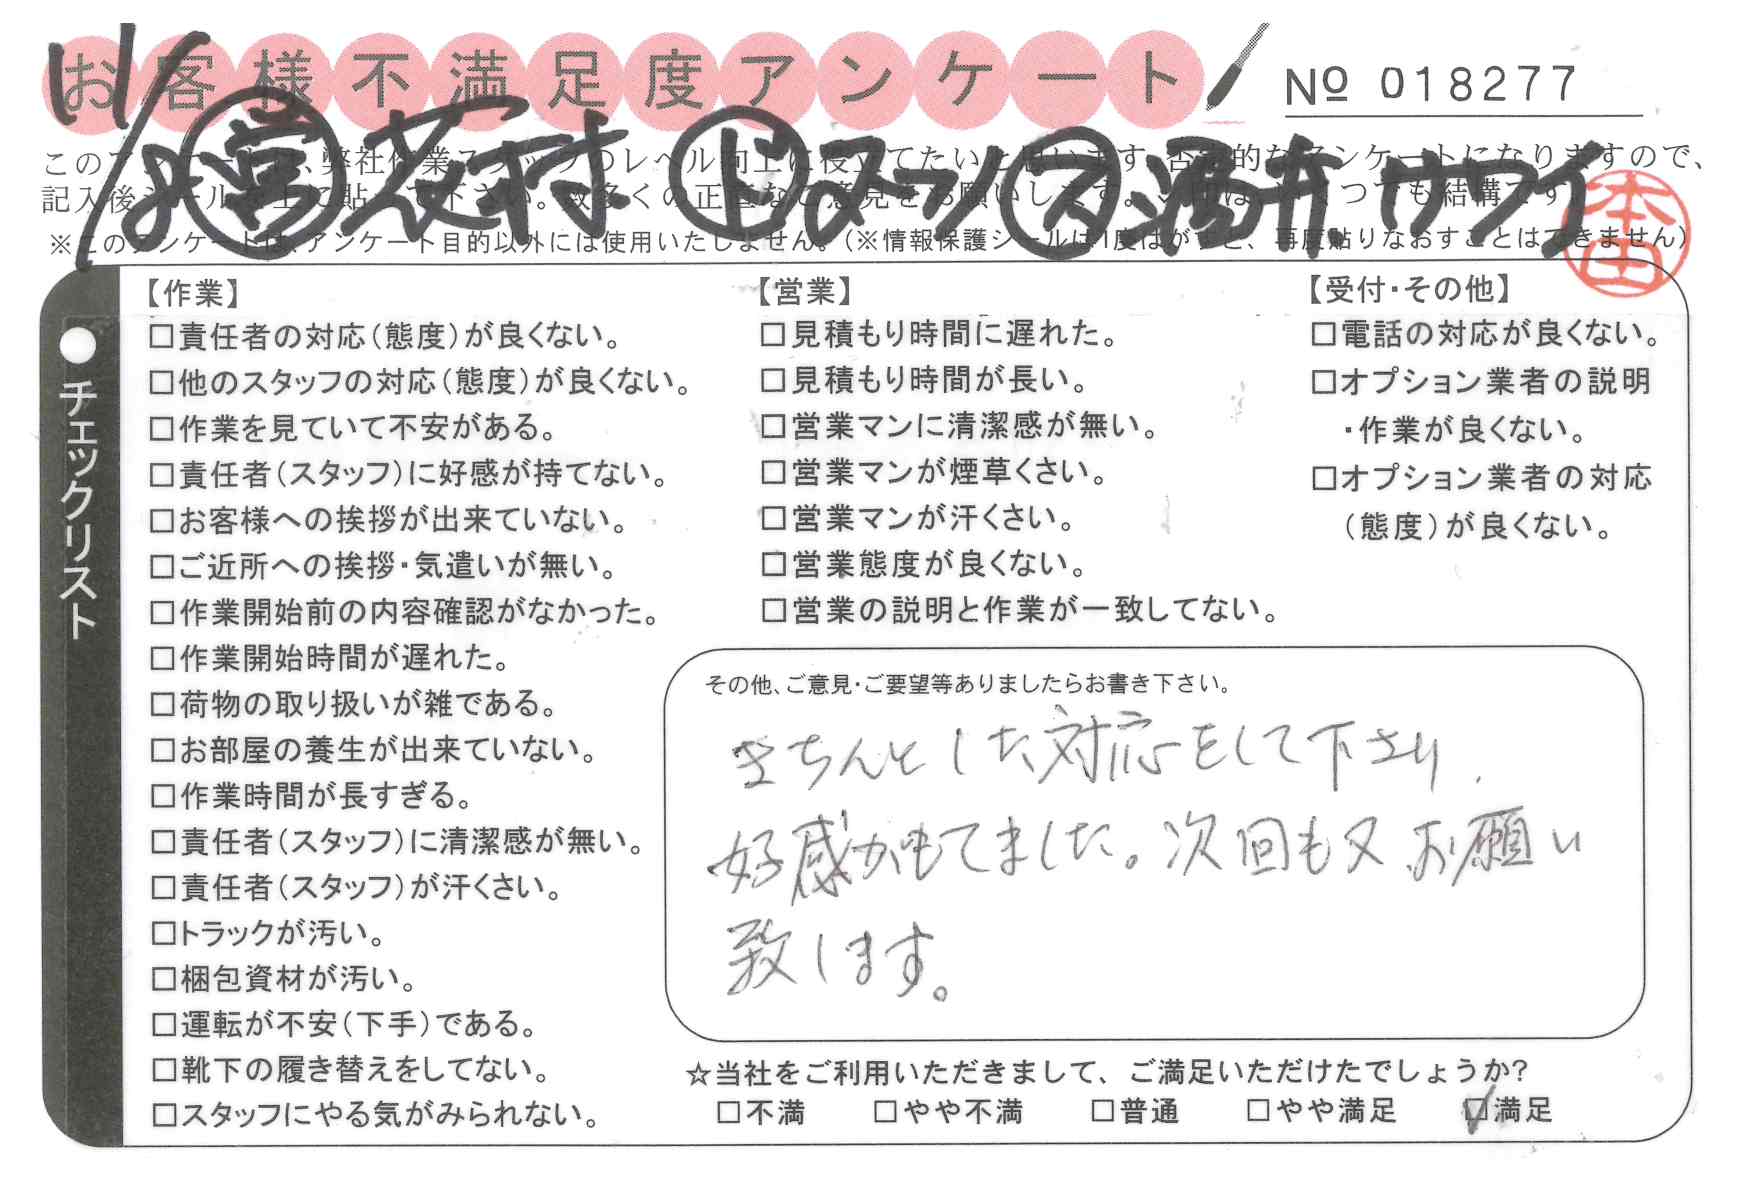 お客様不満足度アンケート
№ 018277
11/
このアンケートは、弊社作業スタッフのレベル向上に役立てたいと思います。否定的なアンケートになりますので、
記入後シールを上に貼って下さい。数多くの正直なご意見をお願いします。
※このアンケートは、アンケート目的以外には使用いたしません。(※情報保護シールは1度はがすと、再度貼りなおすことはできません)
営 花村 ス 酒井 サワイ
本田
チェックリスト
【作業】
□責任者の対応(態度)が良くない。
□他のスタッフの対応(態度)が良くない。
□作業を見ていて不安がある。
□責任者(スタッフ)に好感が持てない。
□お客様への挨拶が出来ていない。
□ご近所への挨拶・気遣いが無い。
□作業開始前の内容確認がなかった。
□作業開始時間が遅れた。
□荷物の取り扱いが雑である。
□お部屋の養生が出来ていない。
□作業時間が長すぎる。
□責任者(スタッフ)に清潔感が無い。
□責任者(スタッフ)が汗くさい。
□トラックが汚い。
□梱包資材が汚い。
□運転が不安(下手)である。
□靴下の履き替えをしてない。
□スタッフにやる気がみられない。
【営業】
□見積もり時間に遅れた。
□見積もり時間が長い。
□営業マンに清潔感が無い。
□営業マンが煙草くさい。
□営業マンが汗くさい。
□営業態度が良くない。
□営業の説明と作業が一致してない。
【受付・その他】
□電話の対応が良くない。
□オプション業者の説明
・作業が良くない。
□オプション業者の対応
(態度)が良くない。
その他、ご意見・ご要望等ありましたらお書き下さい。
きちんとした対応をして下さり、
好感がもてました。次回も又お願い
致します。
☆当社をご利用いただきまして、ご満足いただけたでしょうか?
□不満 □やや不満 □普通 □やや満足 ☑満足